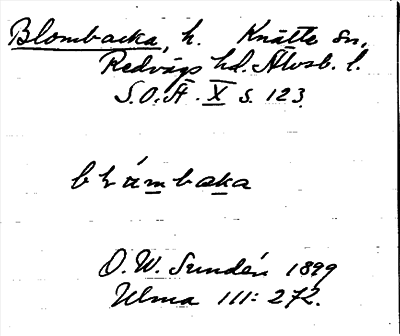 Blombacka, h. Knätte sn,
Redvägs hd. Älvsb. l.
S.O.Ä. X s. 123.
blåmbaka
O. W. Sundén 1899
Ulma 111: 272.